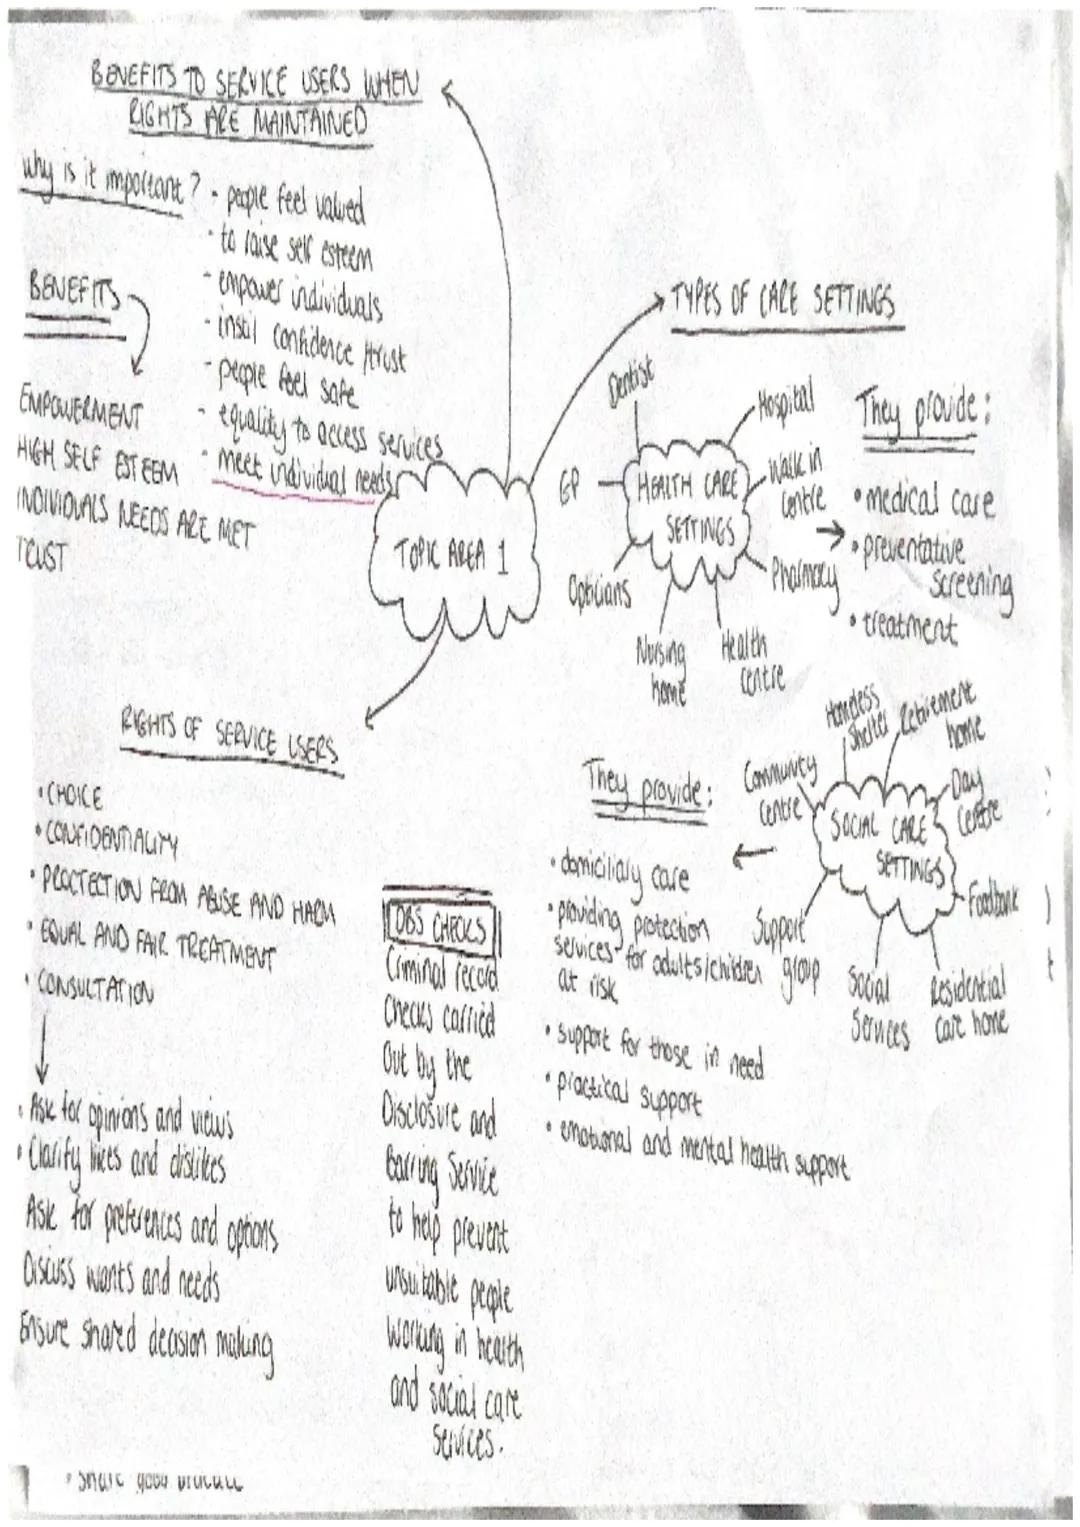 BENEFITS TO SERVICE USERS WHEN
RIGHTS ARE MAINTAINED
why is it important?
- people feel valued
- to raise self esteem
- empower individuals
- instil confidence /trust
- people feel safe
- equality to access services
- meet individual needs
BENEFITS
EMPOWERMENT
HIGH SELF ESTEEM
INDIVIDUALS NEEDS ARE MET
TRUST
TOPIC AREA 1
TYPES OF CARE SETTINGS
HEALTH CARE
SETTINGS
Dentist
Hospital
Walk in
centre
Pharmacy
Health
centre
Nursing
home
Opticians
GP
They provide:
• medical care
• preventative
screening
• treatment
SOCIAL CARE
SETTINGS
Homeless
shelter
Retirement
home
Day
centre
Foodbank
Residential
care home
Social
Services
Support
group
Community
centre
They provide:
• domiciliary care
• providing protection
services for adults/children
at risk
• support for those in need
• practical support
• emotional and mental health support
RIGHTS OF SERVICE USERS
• CHOICE
• CONFIDENTIALITY
• PROCTECTION FROM ABUSE AND HARM
• EQUAL AND FAIR TREATMENT
• CONSULTATION
• Ask for opinions and views
• Clarify likes and dislikes
Ask for preferences and options
Discuss wants and needs
Ensure shared decision making
DBS CHECKS
Criminal record
Checks carried
Out by the
Disclosure and
Barring Service
to help prevent
unsuitable people
working in health
and social care
services.